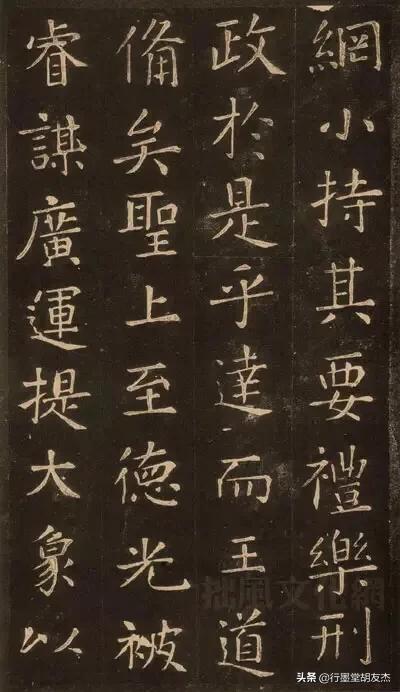 網小持其要禮樂刑
政於是乎達而王道
備矣聖上至德光被
睿謀廣運提大象以
拙風文化網
头条 @行墨堂胡友杰